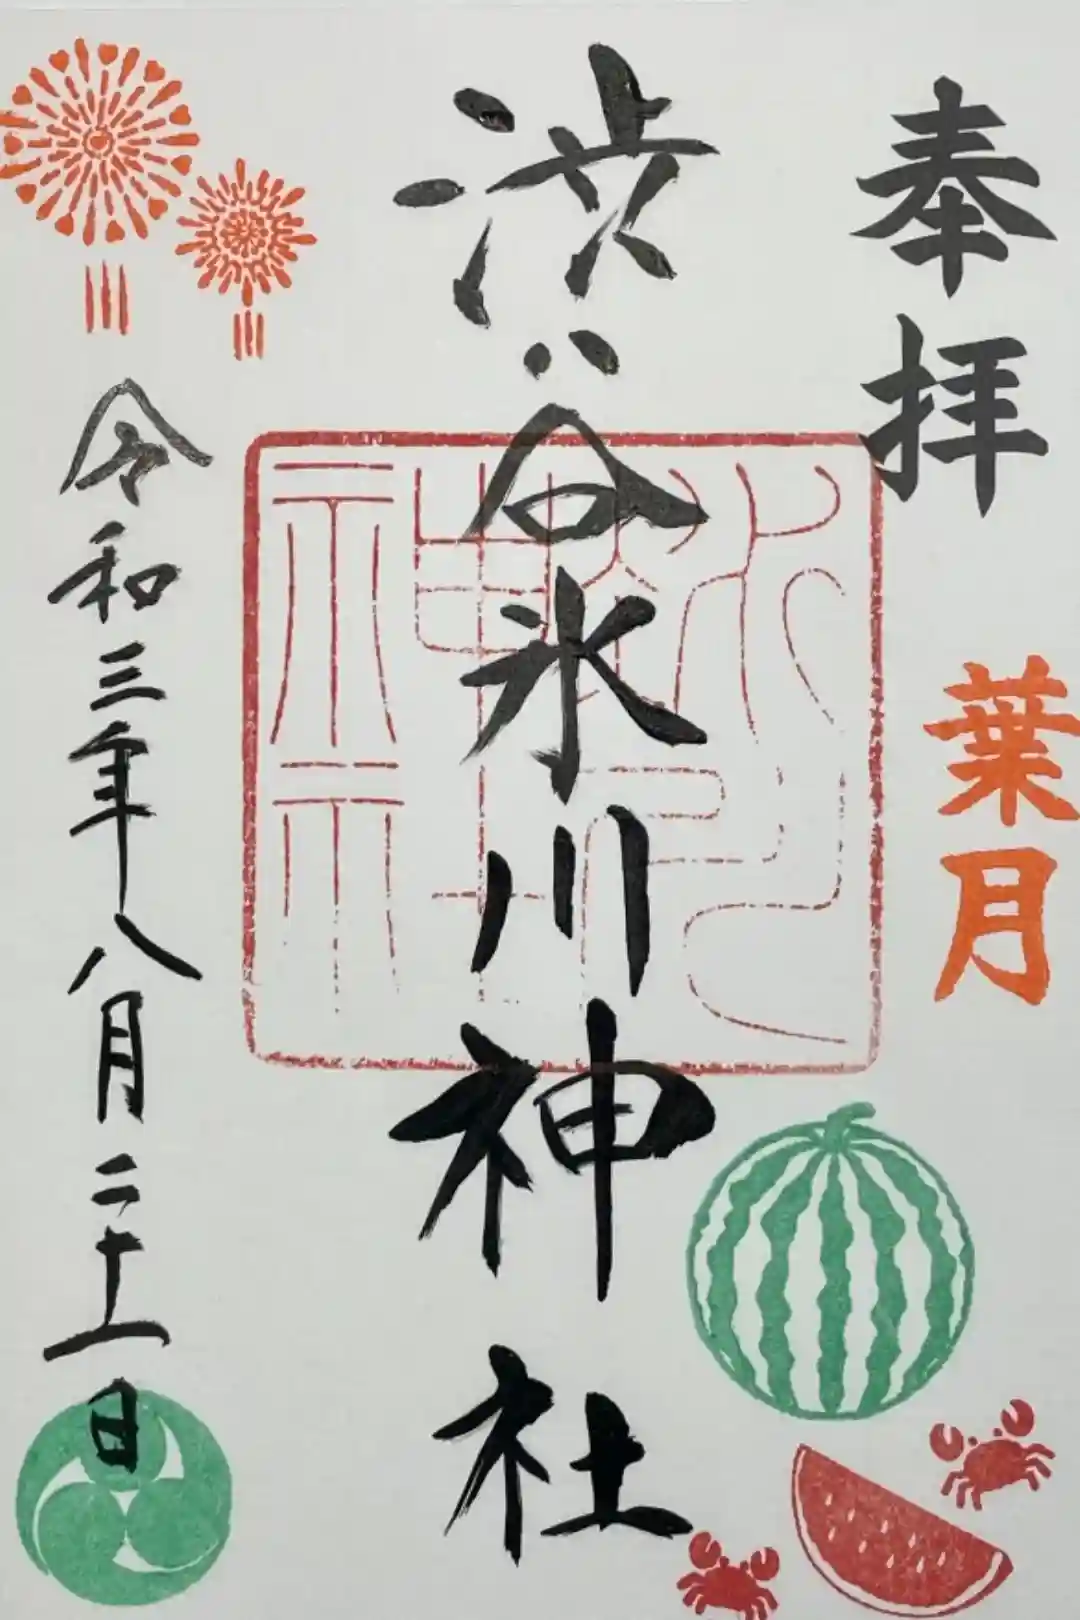 奉拝
葉月
渋谷氷川神社
氷川神社
令和三年八月二十一日